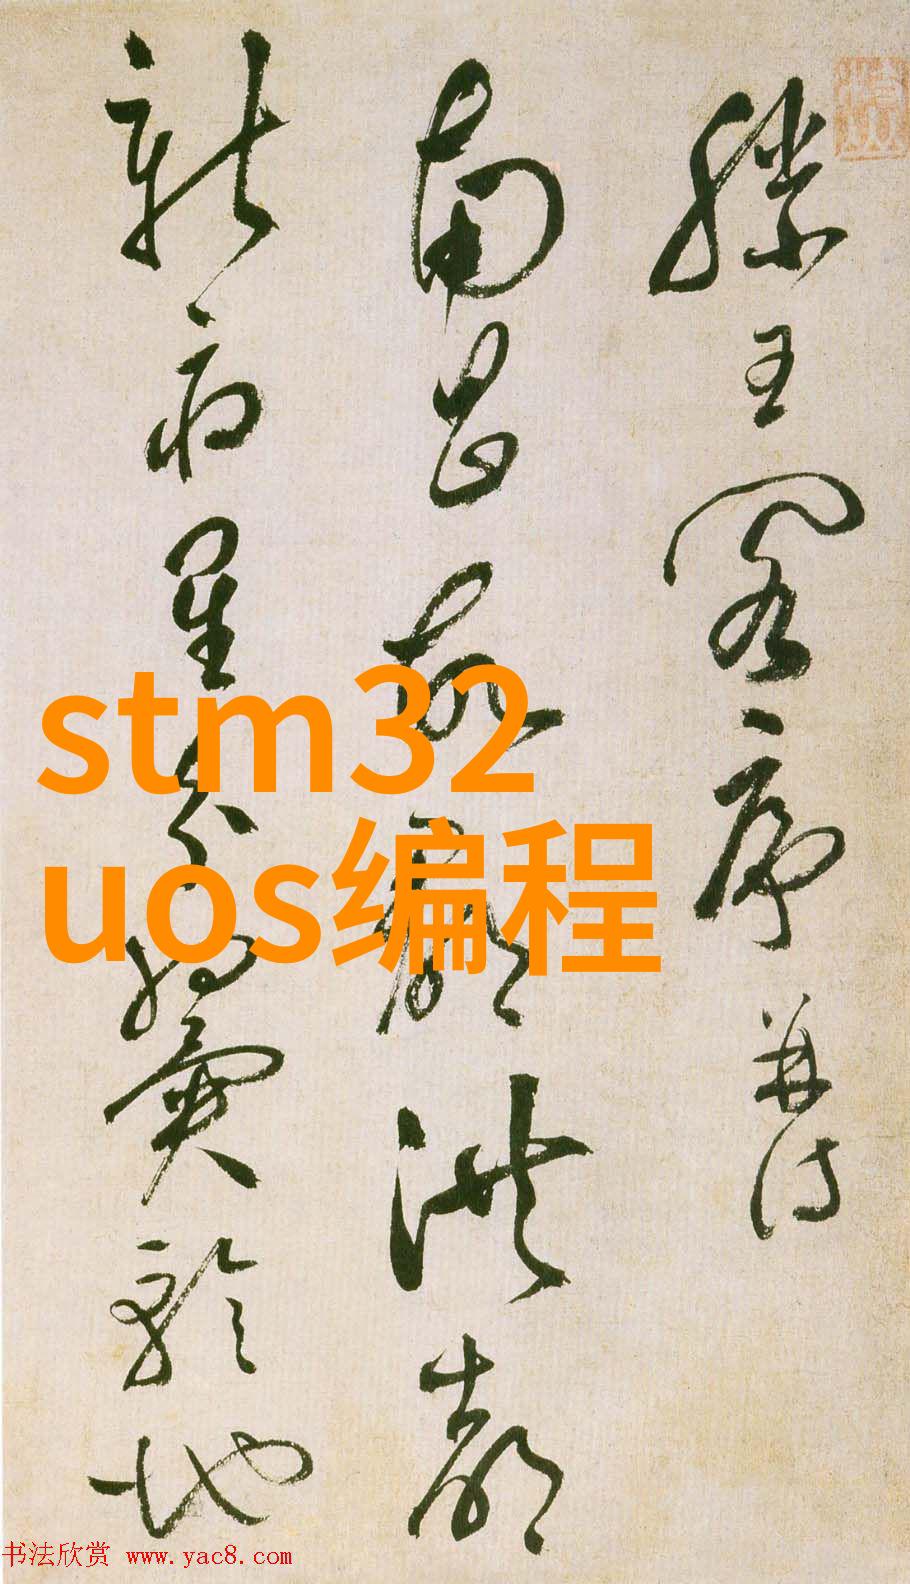 滕王阁序并诗
南昌故郡洪都
新府星分翼轸地
stm32
uos编程
书法欣赏 www.yac8.com